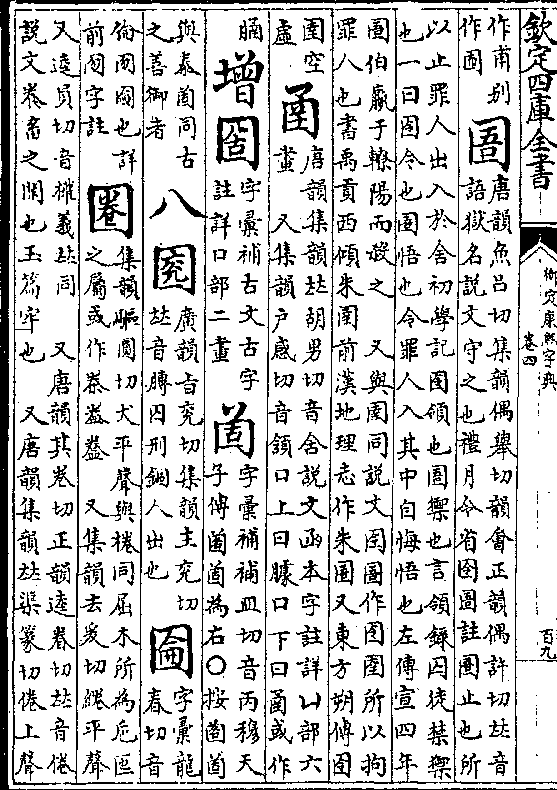 欽定四庫全書
御定康熙字典
卷四
百九
作甫别
作圃
圄
唐韻魚吕切集韻偶舉切韻會正韻偶許切𠀤音
語獄名説文守之也禮月令省囹圄註圄止也所
以止罪人出入於舍初學記囹領也圄禦也言領録囚徒禁禦
也一曰囹令也圄悟也令罪人入其中自悔悟也左傳宣四年
圄伯嬴于轑陽而殺之 又與圉同説文圉圄作囹圉所以拘
罪人也書禹貢西傾朱圉前漢地理志作朱圄又東方朔傳囹
圄空
虚
圅
唐韻集韻𠀤胡男切音含説文函本字註詳凵部六
畫 又集韻户感切音頷口上曰臄口下曰圅或作
增
字彙補古文古字
註詳口部二畫
字彙補補皿切音丙穆天
子傳 爲右○按
與泰 同古
之善御者
八
廣韻旨兖切集韻主兖切
𠀤音膞囚刑錮人出也
圇
字彙龍
春切音
倫囫圇也詳
前囫字註
圈
集韻驅圓切犬平聲與棬同屈木所爲卮匜
之屬或作桊 又集韻去爰切綣平聲
又逵員切音權義𠀤同 又唐韻其卷切正韻逵眷切𠀤音倦
説文養畜之閑也玉篇牢也 又唐韻集韻𠀤渠篆切倦上聲